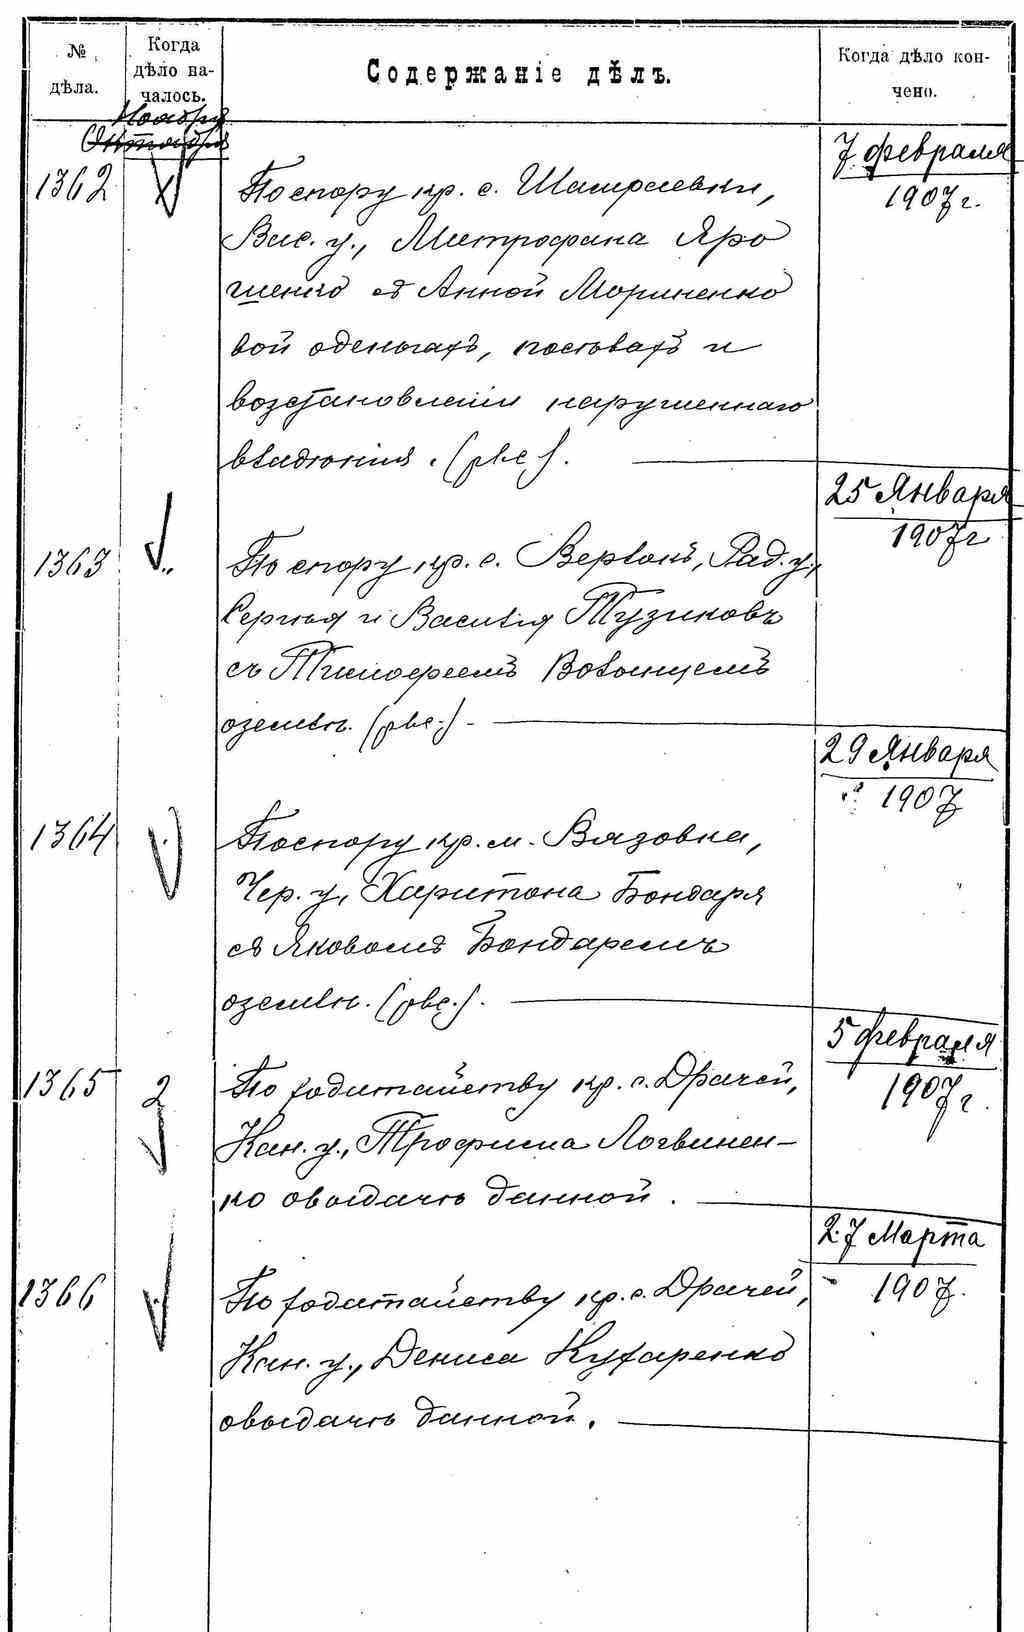 № дѣла.
Когда дѣло на-
чалось.
Содержаніе дѣлъ.
Когда дѣло кон-
чено.
Ноября
Октября
7 февраля
1907 г.
1362
По спору кр. с. Шамраевки,
Вас. у., Митрофана Яро
шенко съ Анной Мориненко
вой о деньгахъ, посѣвахъ и
возстановленіи нарушеннаго
владѣнія. (рвс).
25 Января
1907 г
1363
По спору кр. с. Верlокъ, Рад. у.,
Сергѣя и Василія Тузиковъ
съ Тимофеемъ Вовынцемъ
о землѣ. (рвс.).
29 Января
1907
1364
По спору кр. м. Вязовка,
Чер. у., Харитона Бондаря
съ Яковомъ Бондаремъ
о землѣ. (рвс.).
5 февраля
1907 г.
1365
2
По ходатайству кр. с. Драчей,
Кан. у., Трофима Логвинен-
ко о выдачѣ данной.
27 Марта
1907.
1366
По ходатайству кр. с. Драчей,
Кан. у., Дениса Кухаренко
о выдачѣ данной.